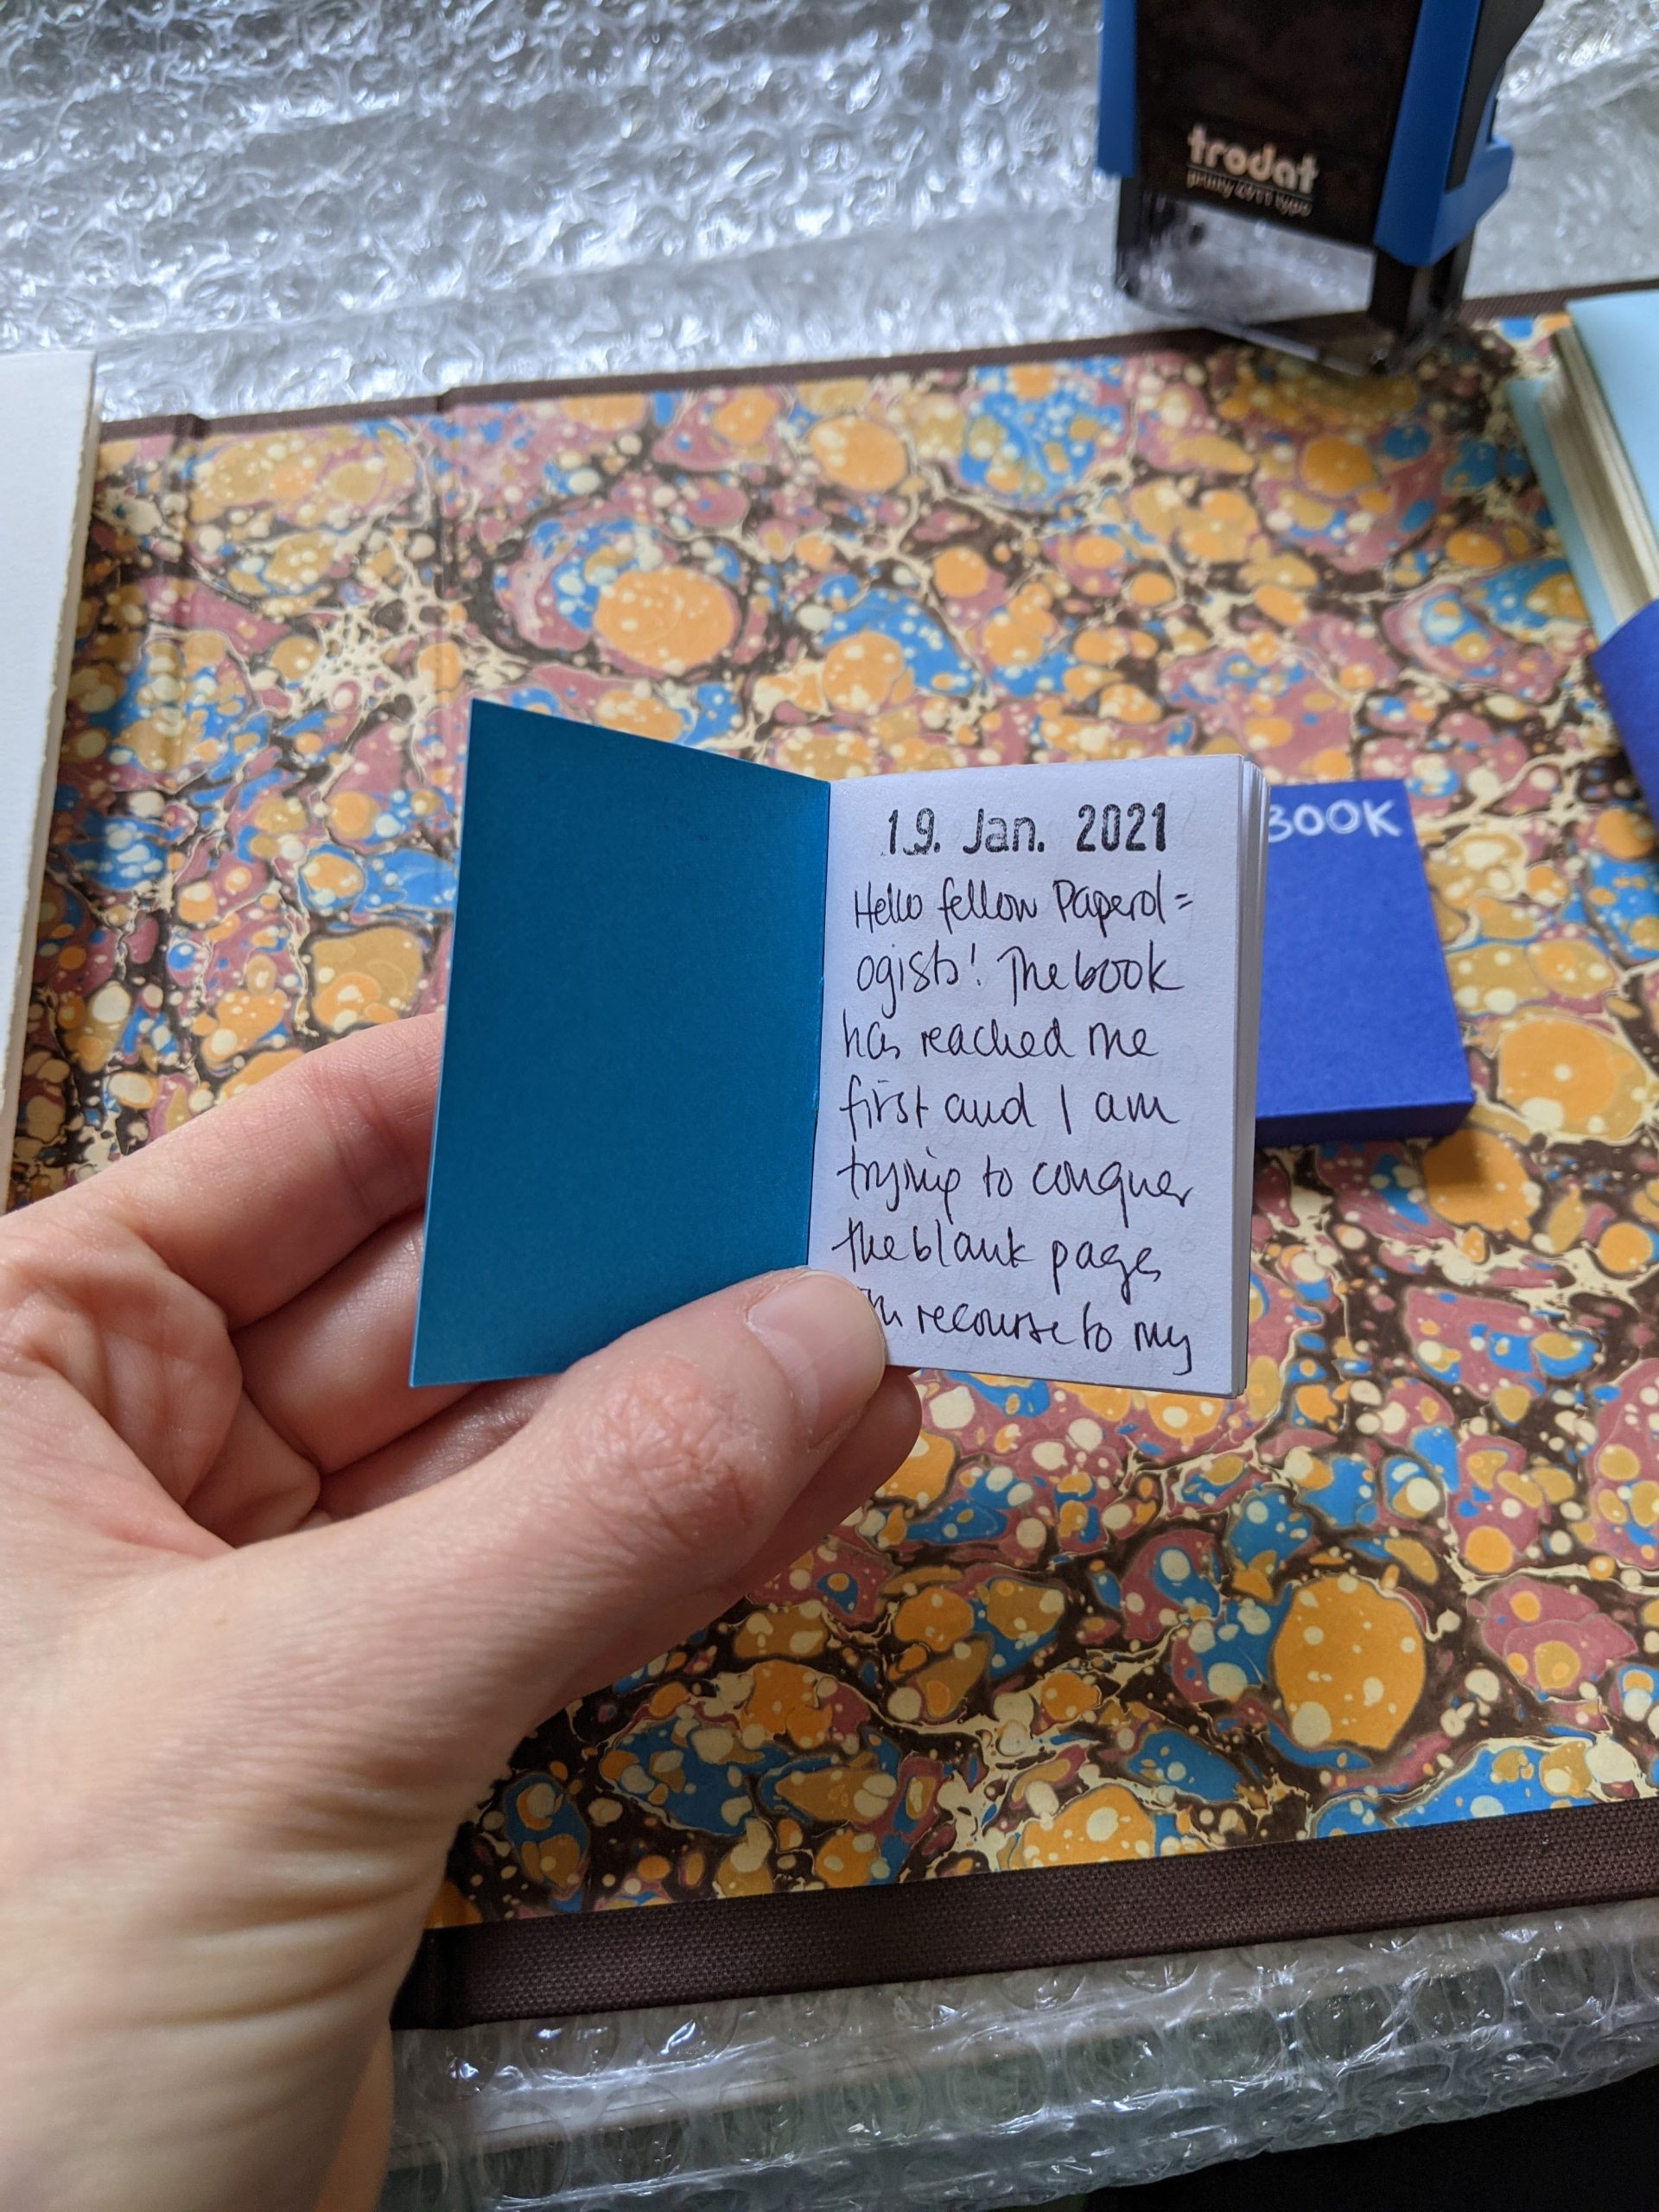 trodat
19. Jan. 2021
Hello fellow Paperol=
ogists! The book
has reached me
first and I am
trying to conquer
the blank pages
recourse to my
BOOK